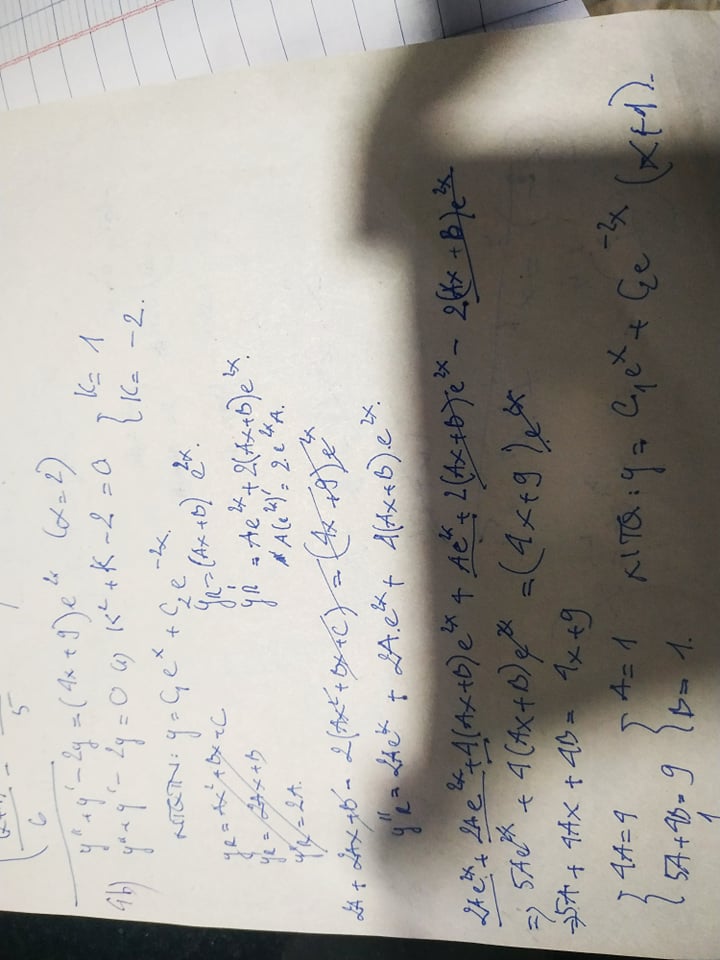 6 - 5
y'' + y' - 2y = (4x + 9) e^{2x} (α = 2)
4b) y'' + y' - 2y = 0 => K² + K - 2 = 0 { K = 1
K = -2.
NTQTN: y = C₁e^x + C₂e^{-2x}.
y_R = Ax² + Bx + C
y_R = (Ax + B) e^{2x}.
y_R = 2Ax + B
y_R' = Ae^{2x} + 2(Ax + B)e^{2x}.
y''_R = 2A.
A(e^{2x})' = 2.e^{2x}A.
2A + 2Ax + B - 2(Ax² + Bx + C) = (4x + 9)e^{2x}
y''_R = 2Ae^{2x} + 2A.e^{2x} + 4(Ax + B).e^{2x}.
2Ae^{2x} + 2Ae^{2x} + 4(Ax + B)e^{2x} + Ae^{2x} + 2(Ax + B)e^{2x} - 2(Ax + B)e^{2x}
=> 5Ae^{2x} + 4(Ax + B)e^{2x} = (4x + 9)e^{2x}
=> 5A + 4Ax + 4B = 4x + 9
{ 4A = 4 { A = 1
5A + 4B = 9 B = 1.
NTTQ: y = C₁e^x + C₂e^{-2x} (x + 1).
1